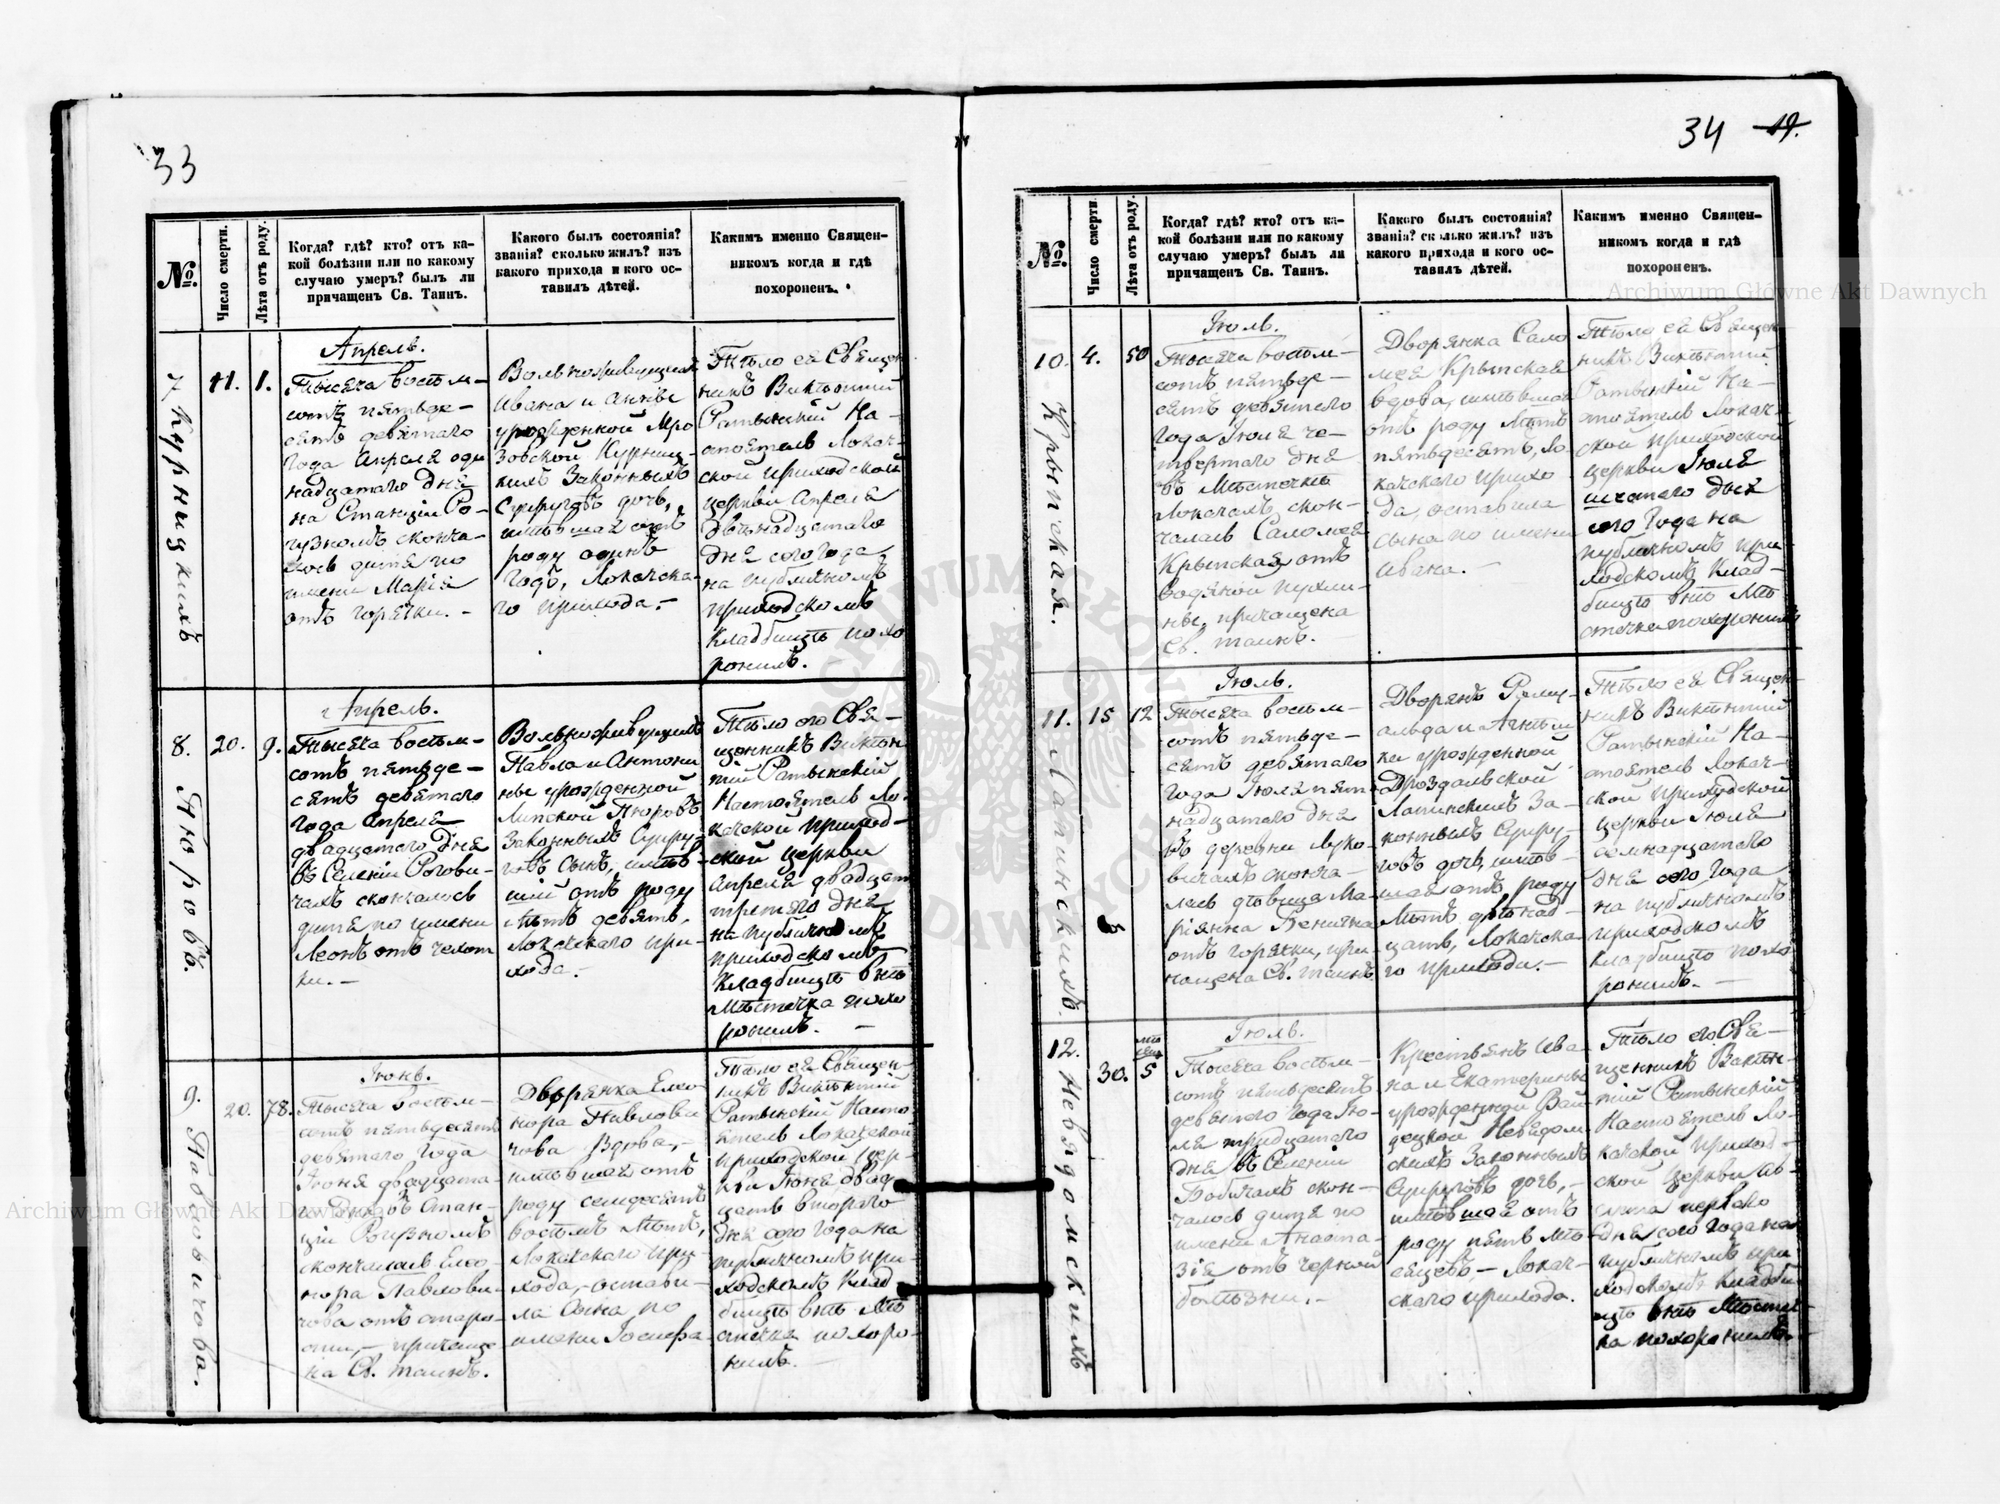 33
№.
Число смерти.
Лѣта отъ роду.
Когда? гдѣ? кто? отъ ка-
кой болѣзни или по какому
случаю умеръ? былъ ли
причащенъ Св. Таинъ.
Какого былъ состоянія?
званія? сколько жилъ? изъ
какого прихода и кого ос-
тавилъ дѣтей.
Какимъ именно Священ-
никомъ когда и гдѣ
похороненъ.
7
Курницкихъ
11.
1.
Апрель.
Тысяча восем-
сотъ пятьде-
сятъ девятаго
года Апреля оди
надцатаго дня
на Станціи Ро-
гузномъ сконча-
лось дитя по
имени Марія
отъ горячки. -
Вольноживущихъ
Ивана и Анны
урожденной Мро
зовской Курниц-
кихъ Законныхъ
Супруговъ дочь,
имѣвшая отъ
роду одинъ
годъ, Локачска-
го прихода. -
Тѣло ея Священ
никъ Викентій
Ратынскій На-
стоятель Локач-
ской приходской
церкви Апреля
двѣнадцатаго
дня сего года
на публичномъ
приходскомъ
Кладбищѣ похо
ронилъ. -
8.
Пюровъ.
20.
9.
Апрель.
Тысяча восем-
сотъ пятьде-
сятъ девятаго
года Апреля
двадцатаго дня
въ Селеніи Рогови-
чахъ скончалось
дитя по имени
Леонъ отъ чехот
ки. -
Вольноживущихъ
Павла и Антони
ны урожденной
Липской Пюровъ
Законныхъ Супру-
говъ сынъ, имѣв-
шій отъ роду
лѣтъ девять.
Локачскаго при-
хода. -
Тѣло его Свя-
щенникъ Викен-
тій Ратынскій
Настоятель Ло-
качской приход-
ской церкви
Апреля двадцать
третяго дня
на публичномъ
приходскомъ
Кладбищѣ внѣ
Мѣстечка похо
ронилъ. -
9.
Павловичова.
20.
78.
Іюнь.
Тысяча восем-
сотъ пятьдесятъ
девятаго года
Іюня двадцата-
го дня въ Стан-
ціи Рогузномъ
скончалась Елео-
нора Павлови-
чова отъ старо-
сти, - причаще
на Св. таинъ.
Дворянка Елео
нора Павлови
чова Вдова, -
имѣвшая отъ
роду семдесятъ
восемъ лѣтъ,
Локачскаго при-
хода, - остави-
ла сына по
имени Іосифа -
Тѣло ея Священ-
никъ Викентій
Ратынскій Насто
ятель Локачской
приходской цер-
кви Іюня двад
цать втораго
дня сего года на
публичномъ при-
ходскомъ Клад
бищѣ внѣ Мѣ
стечка похоро-
нилъ. -
34 19.
№.
Число смерти.
Лѣта отъ роду.
Когда? гдѣ? кто? отъ ка-
кой болѣзни или по какому
случаю умеръ? былъ ли
причащенъ Св. Таинъ.
Какого былъ состоянія?
званія? сколько жилъ? изъ
какого прихода и кого ос-
тавилъ дѣтей.
Какимъ именно Священ-
никомъ когда и гдѣ
похороненъ.
10.
Крыпская.
4.
50
Іюль.
Тысяча восем-
сотъ пятьде-
сятъ девятаго
года Іюля че-
твертаго дня
въ Мѣстечкѣ
Локачахъ скон-
чалась Саломея
Крыпская отъ
водяной пухли-
ны, причащена
Св. таинъ.
Дворянка Сало
мея Крыпская
вдова, имѣвшая
отъ роду лѣтъ
пятьдесятъ, Ло-
качскаго прихо
да, оставила
сына по имени
Ивана. -
Тѣло ея Священ
никъ Викентій
Ратынскій На-
стоятель Локач-
ской приходской
церкви Іюля
шестаго дня
сего года на
публичномъ при
ходскомъ Клад-
бищѣ внѣ Мѣ
стечка похоронилъ
11.
Лапинскихъ.
15
12
Іюль.
Тысяча восем-
сотъ пятьде-
сятъ девятаго
года Іюля пят-
надцатаго дня
въ деревни Луко-
вичахъ сконча-
лась дѣвица Ма-
ріянна Бенигна
отъ горячки, при
чащена Св. таинъ
Дворянъ Рому-
альда и Анѣли
ки урожденной
Дроздальской
Лапинскихъ За-
конныхъ Супру-
говъ дочь, имѣв-
шая отъ роду
лѣтъ двѣнад-
цать, Локачска-
го прихода. -
Тѣло ея Священ-
никъ Викентій
Ратынскій На-
стоятель Локач-
ской приходской
церкви Іюля
семнадцатаго
дня сего года
на публичномъ
приходскомъ
Кладбищѣ похо
ронилъ. -
12.
Невядомскихъ
30.
мѣ
сяц.
5
Іюль.
Тысяча восем-
сотъ пятьдесятъ
девятаго года Ію-
ля тридцатаго
дня въ Селеніи
Бабичахъ скон-
чалось дитя по
имени Анаста-
зія отъ черной
болѣзни. -
Крестьянъ Ива-
на и Екатерины
урожденной Вой
децкой Невядом-
скихъ Законныхъ
Супруговъ дочь, -
имѣвшая отъ
роду пять мѣ-
сяцевъ, - Локач-
скаго прихода.
Тѣло его Свя-
щенникъ Викен-
тій Ратынскій
Настоятель Ло-
качской приход-
ской Церкви Ав-
густа перваго
дня сего года на
публичномъ при
ходскомъ Кладби
щѣ внѣ Мѣстеч-
ка похоронилъ. -
Archiwum Główne Akt Dawnych
Archiwum Główne Akt Dawnych
ARCHIWUM GŁÓWNE AKT DAWNYCH